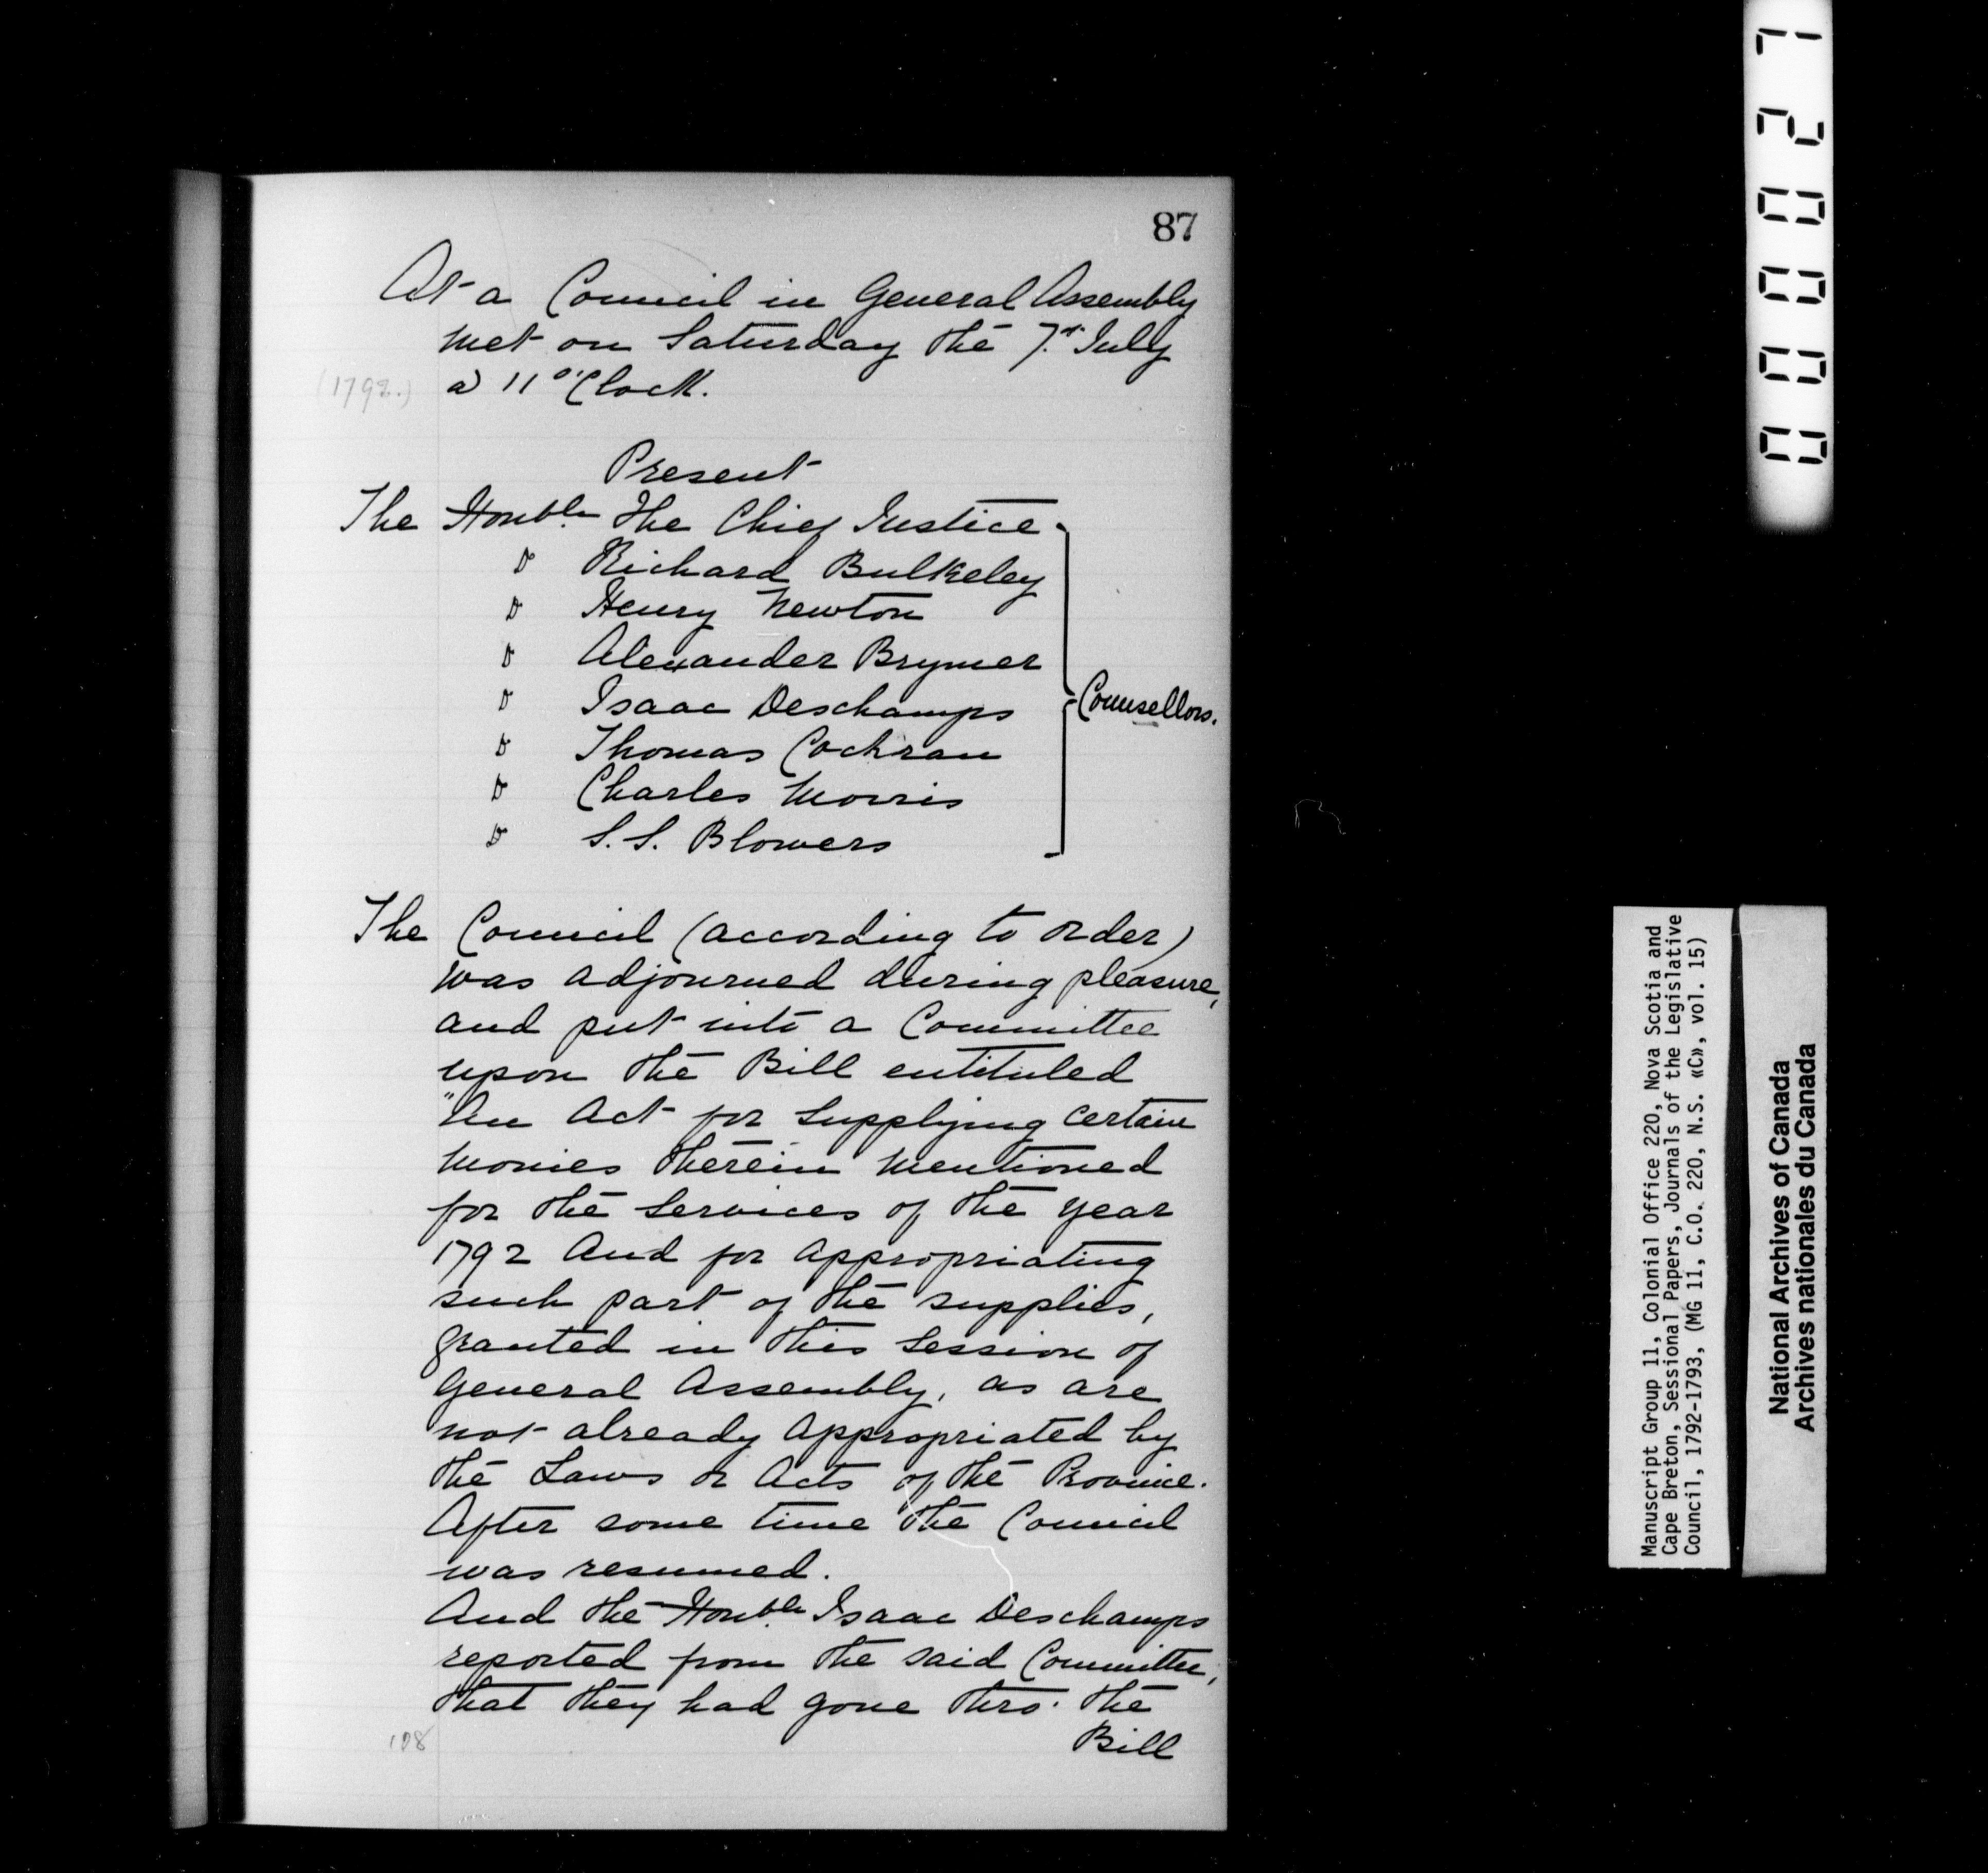 87
At a Council in General Assembly
met on Saturday the 7th July
(1792.) a) 11 o'Clock.
Present
The Honble. The Chief Justice
Do Richard Bulkeley
Do Henry Newton
Do Alexander Brymer
Do Isaac Deschamps
Do Thomas Cochran
Do Charles Morris
Do S. S. Blowers
Counsellors.
The Council (according to order)
was adjourned during pleasure,
and put into a Committee
upon the Bill entituled
"An Act for Supplying certain
Monies therein Mentioned
for the Services of the year
1792 And for Appropriating
such part of the supplies,
granted in this Session of
General Assembly, as are
not already Appropriated by
the Laws or Acts of the Province.
After some time the Council
was resumed.
And the Honble. Isaac Deschamps
reported from the said Committee,
that they had gone thro. the
Bill
108
000027
Manuscript Group 11, Colonial Office 220, Nova Scotia and
Cape Breton, Sessional Papers, Journals of the Legislative
Council, 1792-1793, (MG 11, C.O. 220, N.S. «C», vol. 15)
National Archives of Canada
Archives nationales du Canada